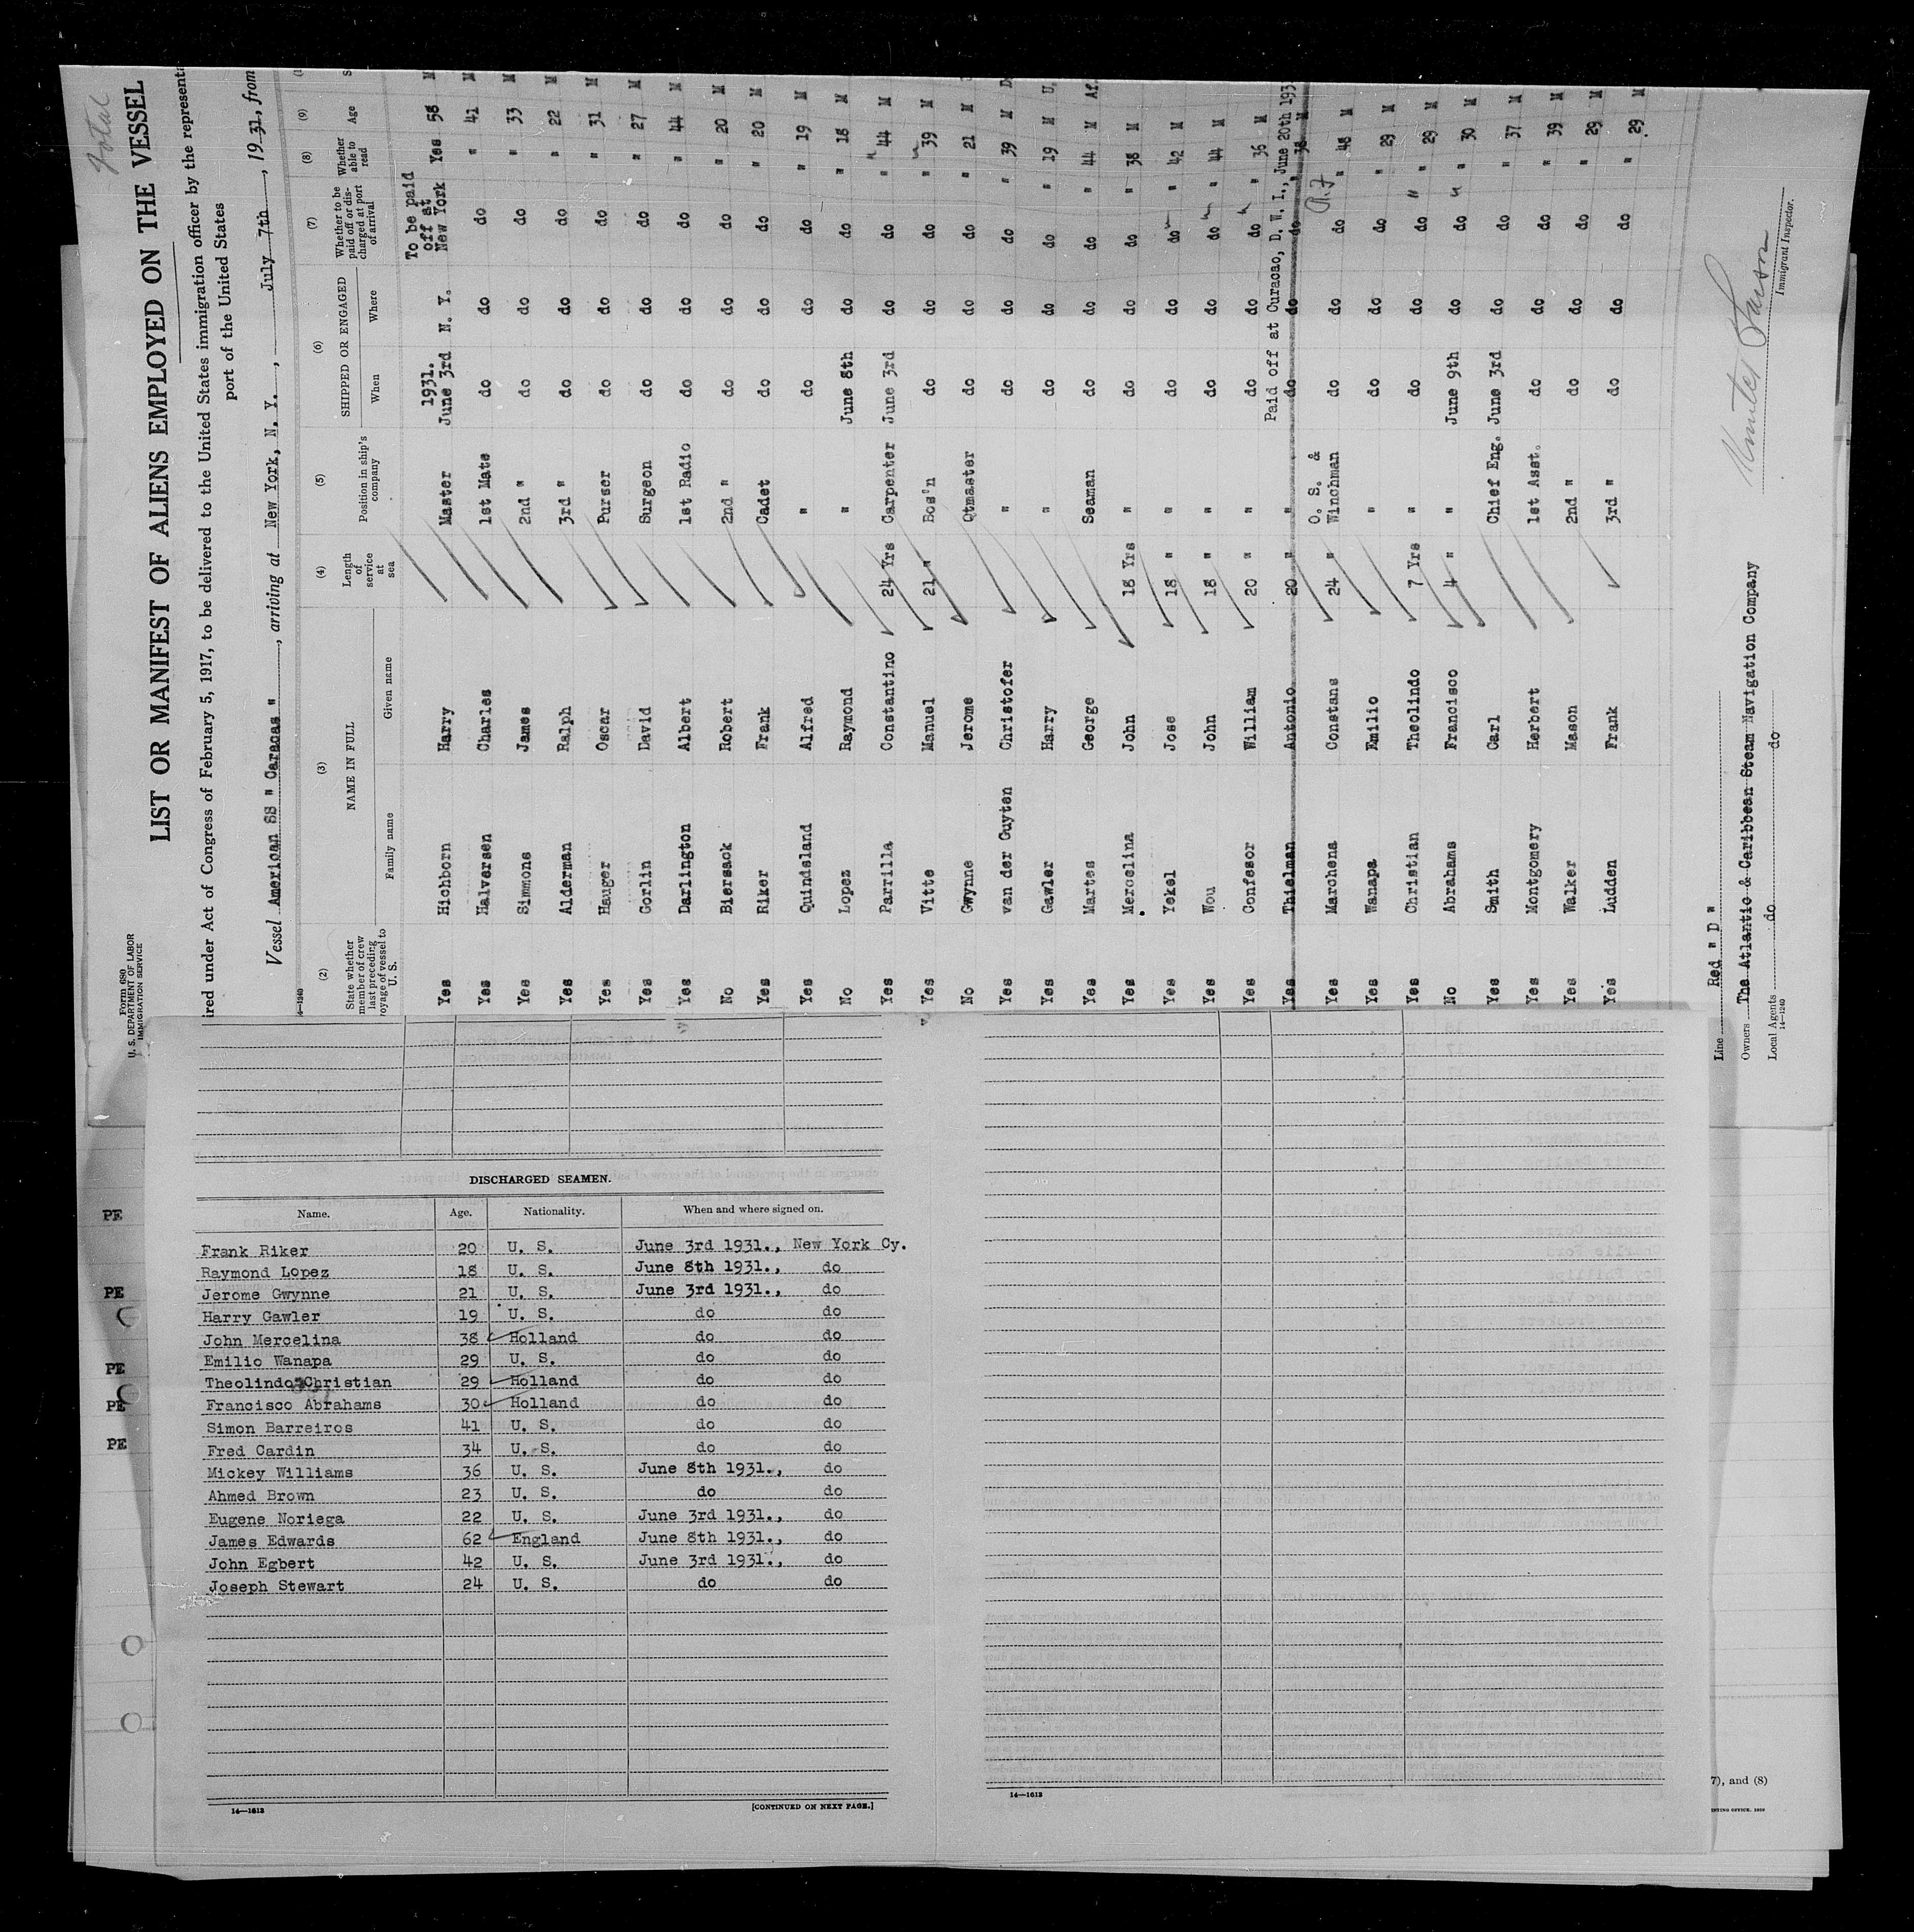 Total
Form 680
U. S. DEPARTMENT OF LABOR
IMMIGRATION SERVICE
LIST OR MANIFEST OF ALIENS EMPLOYED ON THE VESSEL
ired under Act of Congress of February 5, 1917, to be delivered to the United States immigration officer by the representa
port of the United States
Vessel American SS " Caracas ", arriving at New York, N. Y. , July 7th , 19 31, from
14-1240
(2) (3) (4) (5) (6) (7) (8) (9)
State whether member of crew last preceding voyage of vessel to U. S. NAME IN FULL Family name Given name Length of service at sea Position in ship's company SHIPPED OR ENGAGED When Where Whether to be paid off or discharged at port of arrival Whether able to read Age
1931. To be paid off at
Yes Hichborn Harry Master June 3rd N. Y. New York Yes 58 M
Yes Halversen Charles 1st Mate do do do " 41 M
Yes Simmons James 2nd " do do do " 33 M
Yes Alderman Ralph 3rd " do do do " 22 M
Yes Hauger Oscar Purser do do do " 31 M
Yes Gorlin David Surgeon do do do " 27 M
Yes Darlington Albert 1st Radio do do do " 44 M
No Biersack Robert 2nd " do do do " 20 M
Yes Riker Frank Cadet do do do " 20 M
Yes Quindsland Alfred " do do do " 19 M
No Lopez Raymond " June 8th do do " 18 M
Yes Parrilla Constantino 24 Yrs Carpenter June 3rd do do " 44 M
Yes Vitte Manuel 21 " Bos'n do do do " 39 M
No Gwynne Jerome Qtmaster do do do " 21 M
Yes van der Guyten Christofer " do do do " 39 M D
Yes Gawler Harry " do do do " 19 M U.
Yes Martes George Seaman do do do " 44 M Af.
Yes Mercelina John 18 Yrs " do do do " 38 M
Yes Yekel Jose 18 " " do do do " 42 M
Yes Wou John 18 " " do do do " 44 M
Yes Confesor William 20 " " do do do " 36 M
Paid off at Curacao, D. W. I., June 20th 193
Yes Thielman Antonio 20 " " do do do " 38 M
O. S. &
Yes Marchena Constans 24 " Winchman do do do " 48 M
Yes Wanapa Emilio " do do do " 29 M
Yes Christian Theolindo 7 Yrs " do do do " 29 M
No Abrahams Francisco 4 " " June 9th do do " 30 M
Yes Smith Carl Chief Eng. June 3rd do do " 37 M
Yes Montgomery Herbert 1st Asst. do do do " 39 M
Yes Walker Mason 2nd " do do do " 29 M
Yes Ludden Frank 3rd " do do do " 29 M
Line Red " D "
Owners The Atlantic & Caribbean Steam Navigation Company
Local Agents do do
14-1240
Immigrant Inspector.
PE
PE
PE
PE
PE
DISCHARGED SEAMEN.
Name. Age. Nationality. When and where signed on.
Frank Riker 20 U. S. June 3rd 1931., New York Cy.
Raymond Lopez 18 U. S. June 8th 1931., do
Jerome Gwynne 21 U. S. June 3rd 1931., do
Harry Gawler 19 U. S. do do
John Mercelina 38 Holland do do
Emilio Wanapa 29 U. S. do do
Theolindo Christian 29 Holland do do
Francisco Abrahams 30 Holland do do
Simon Barreiros 41 U. S. do do
Fred Cardin 34 U. S. do do
Mickey Williams 36 U. S. June 8th 1931., do
Ahmed Brown 23 U. S. do do
Eugene Noriega 22 U. S. June 3rd 1931., do
James Edwards 62 England June 8th 1931., do
John Egbert 42 U. S. June 3rd 1931., do
Joseph Stewart 24 U. S. do do
14-1613
[CONTINUED ON NEXT PAGE.]
14-1613
7), and (8)